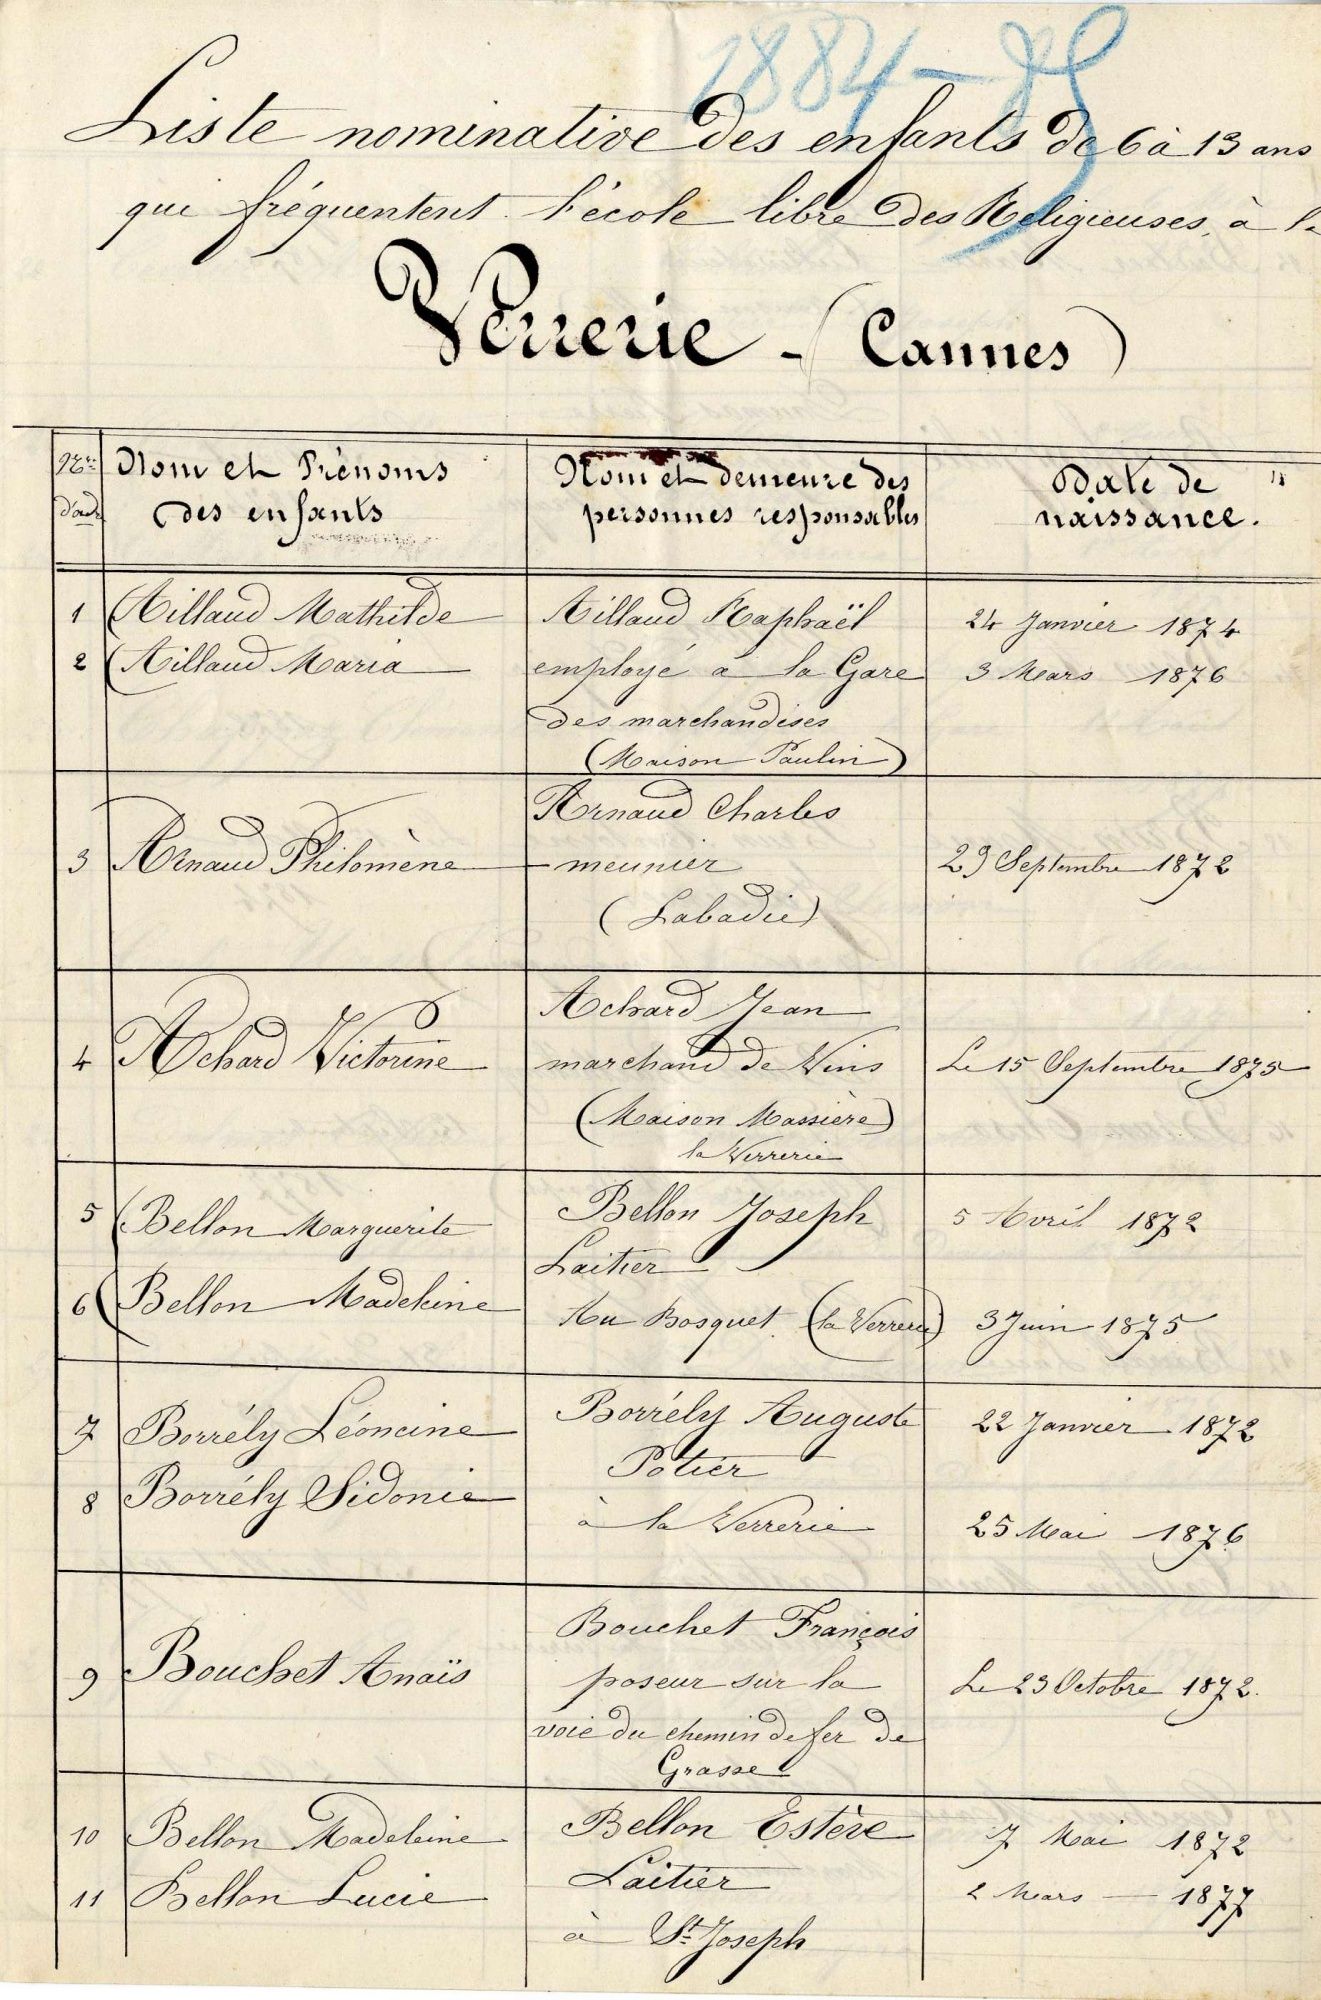 1884-85
Liste nominative des enfants de 6 à 13 ans
qui fréquentent l'école libre des Religieuses, à la
Verrerie - (Cannes)
Nom et Prénoms
des enfants
Nom et demeure des
personnes responsables
Date de
naissance.
1 Aillaud Mathilde
2 Aillaud Maria
Aillaud Raphaël
employé à la Gare
des marchandises
(Maison Paulin)
24 Janvier 1874
3 Mars 1876
3 Arnaud Philomène
Arnaud Charles
meunier
(Labadie)
29 Septembre 1872
4 Achard Victorine
Achard Jean
marchand de Vins
(Maison Massière)
la Verrerie
Le 15 Septembre 1875
5 Bellon Marguerite
6 Bellon Madeleine
Bellon Joseph
Laitier
Au Bosquet (la Verrerie)
5 Avril 1872
3 Juin 1875
7 Borrély Léoncine
8 Borrély Sidonie
Borrély Auguste
Potier
à la Verrerie
22 Janvier 1872
25 Mai 1876
9 Bouchet Anaïs
Bouchet François
poseur sur la
voie du chemin de fer de
Grasse
Le 23 Octobre 1872.
10 Bellon Madeleine
11 Bellon Lucie
Bellon Estève
Laitier
à St. Joseph
7 Mai 1872
2 Mars 1877